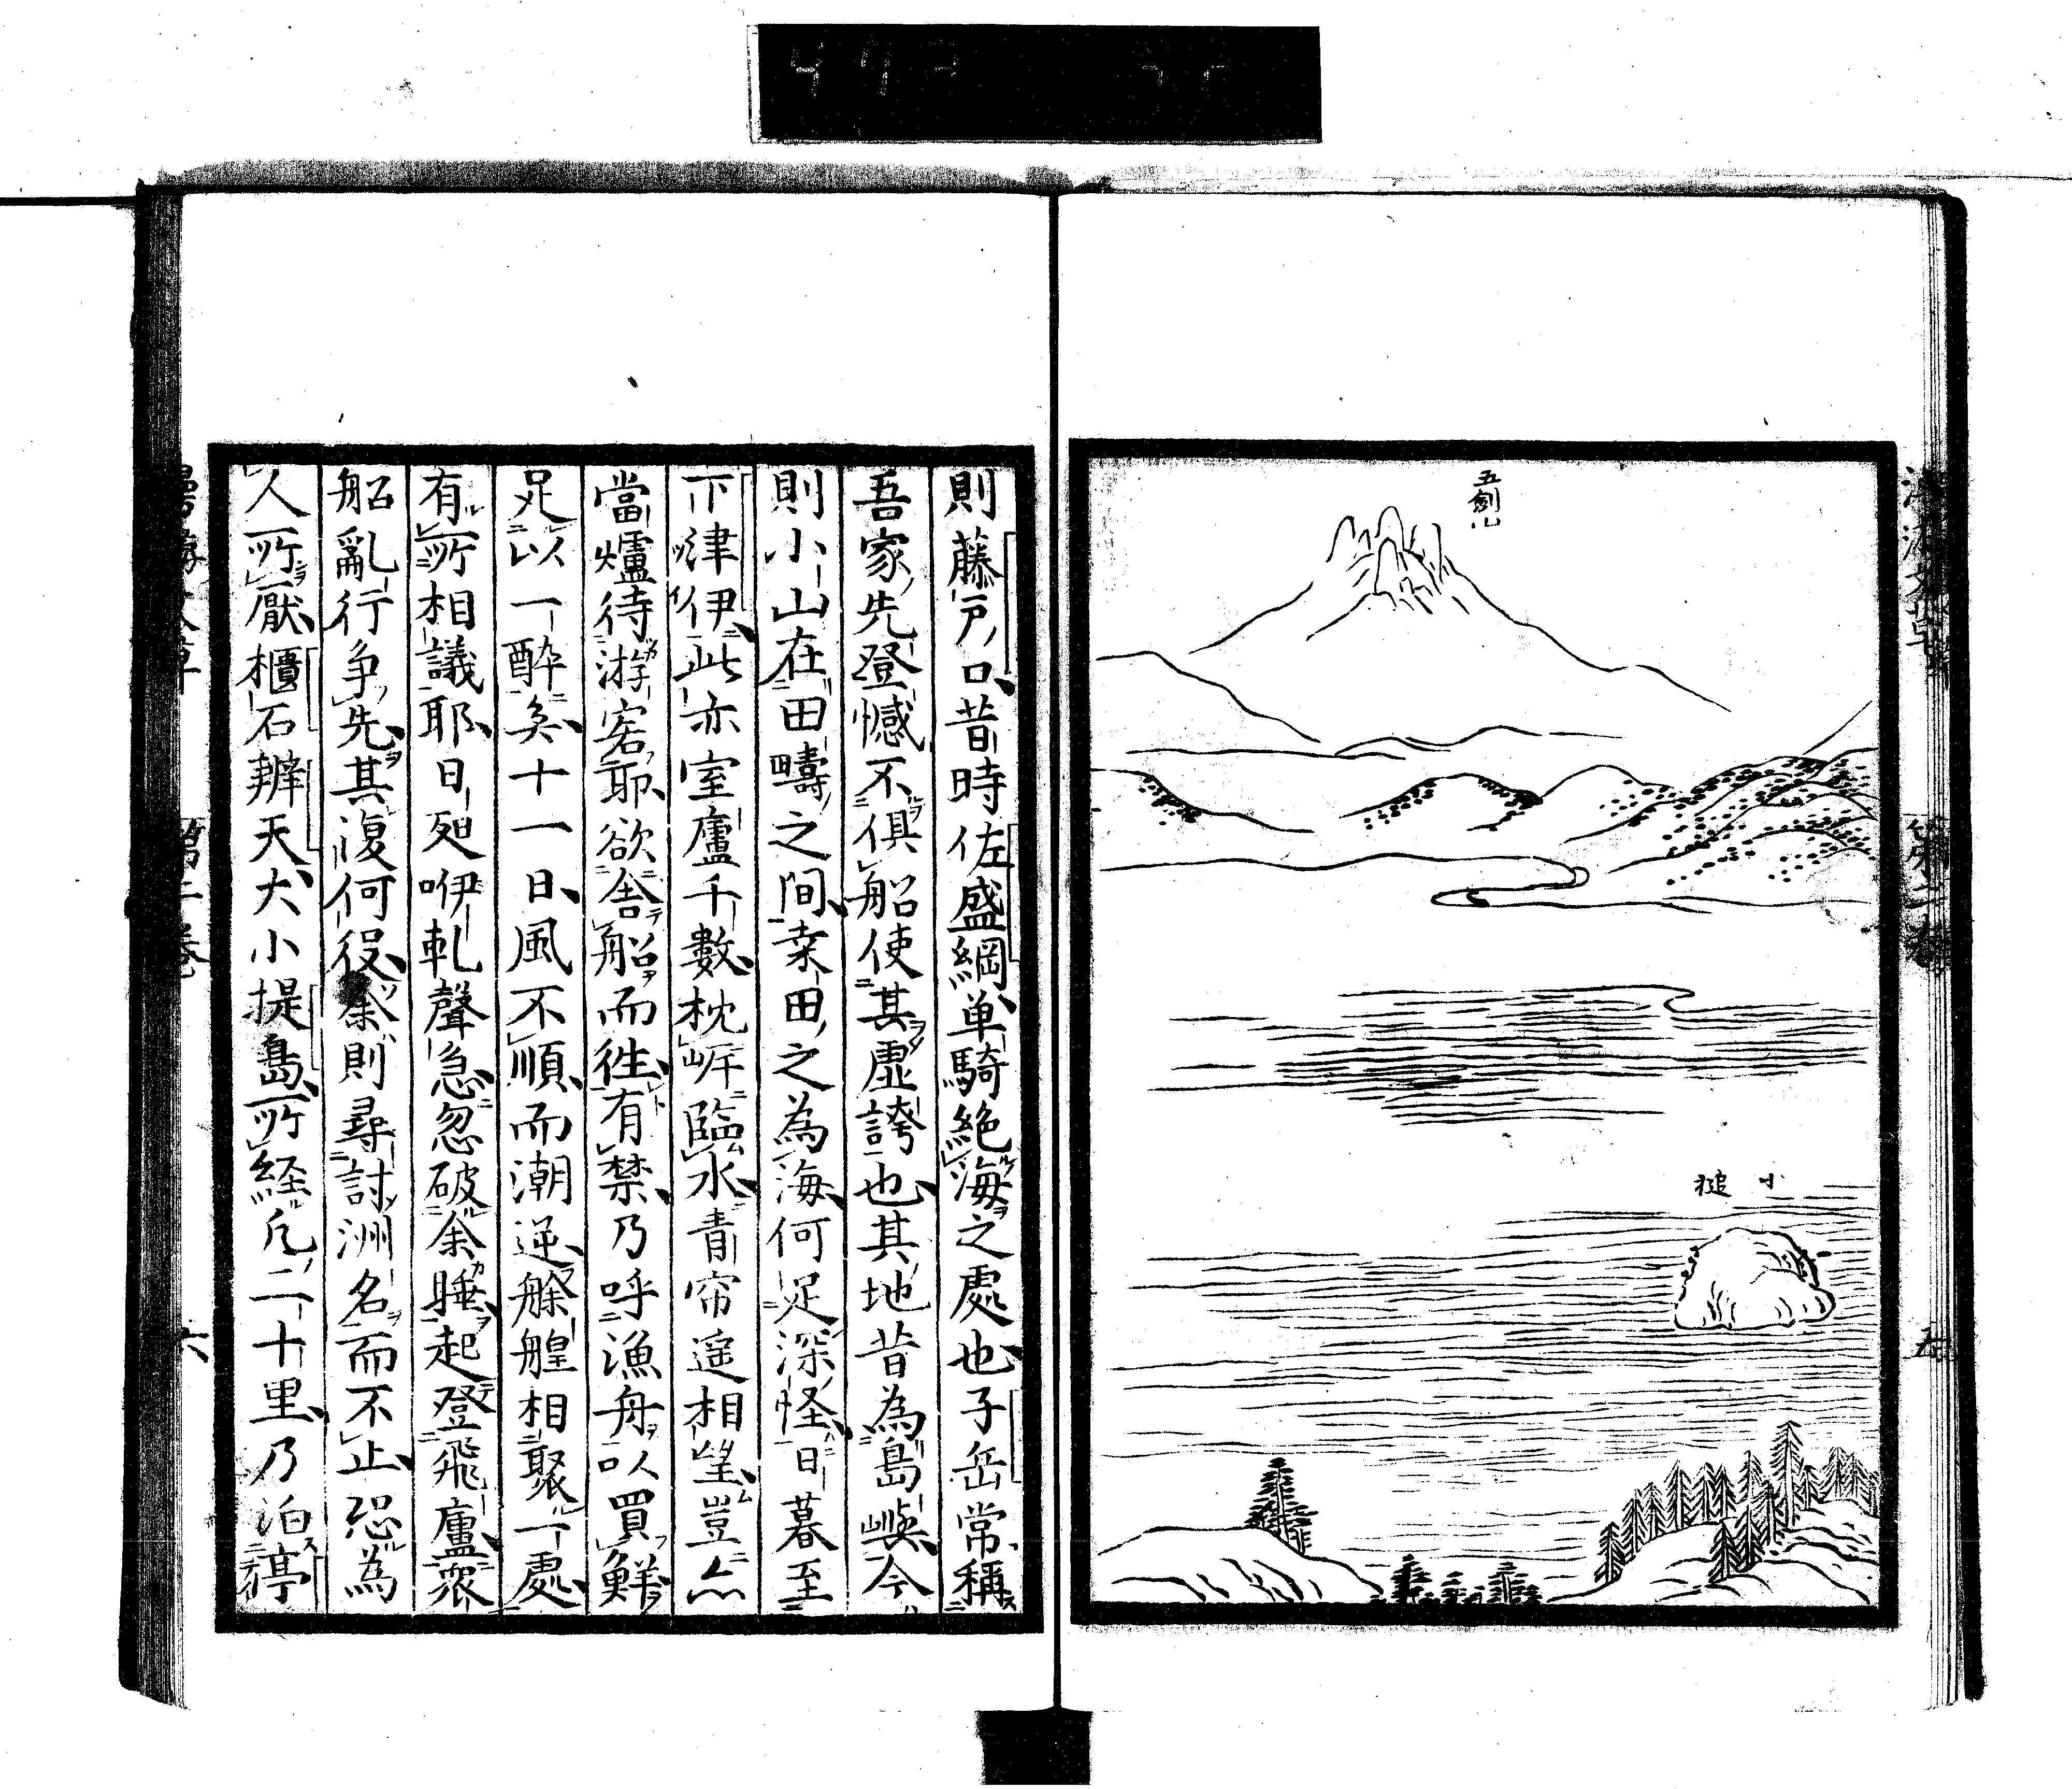 五劍山
小 槌
則藤戸口昔時佐盛綱単騎絶海之處也子岳常稱
吾家先登憾不俱船使其虚誇也其地昔為島嶼今
則小山在田疇之間桒田之為海何足深怪日暮至
下津伊此亦室廬千數枕岸臨水青帘遥相望豈亦
當爐待游客耶欲舎船而徃有禁乃呼漁舟以買鮮
足以一酔矣十一日風不順而潮逆艅艎相聚一處
有所相議耶曰咿軋聲急忽破余睡起登飛廬衆
船亂行争先其復何役余則尋討洲名而不止恐為
人所厭櫃石辨天大小提島所経凡二十里乃泊亭
第二巻
五
第二巻
六